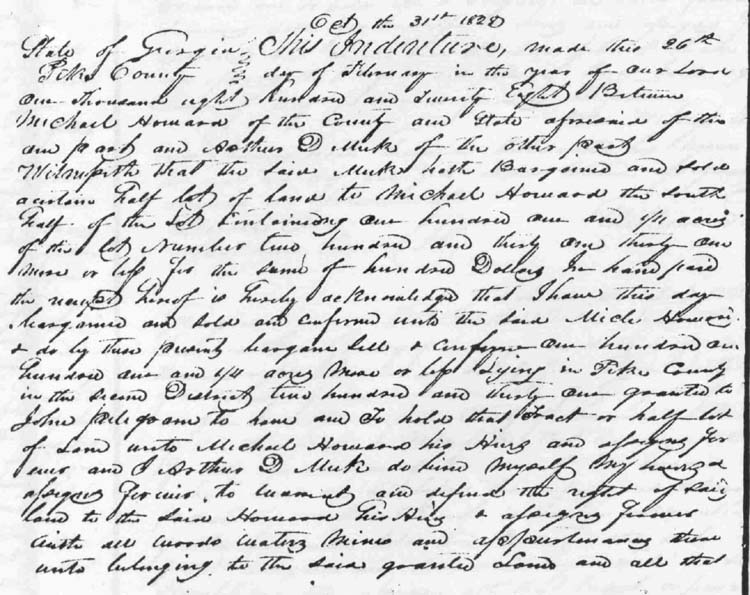 Oct the 31st 1828
State of Georgia This Indenture, made this 26th
Pike County day of February in the year of our Lord
one thousand eight hundred and Twenty Eight Between
Michael Howard of the County and State aforesaid of the
one part and Arthur D Muk of the other part
Witnesseth that the said Muk hath Bargained and sold
a certain half lot of land to Michael Howard the South
half of the Lot Containing one hundred one and 1/4 acres
of the lot Number two hundred and thirty one thirty one
more or less for the sume of hundred Dollars In hand paid
the receipt hereof is hereby acknowledge that I have this day
bargained and sold and confirmed unto the said Michl Howard
& do by these presents bargain sell & one hundred one
hundred one and 1/4 acres more or less Lying in Pike County
in the second District two hundred and thirty one granted to
John to have and To hold that Tract or half lot
of Land unto Michael Howard his Heirs and assigns for
ever and I Arthur D Muk do bind myself my heirs &
assigns forever to warrent and defend the right of said
land to the said Howard his Heirs & assigns forever
with all woods waters Mines and appurtenances there
unto belonging to the said granted Land and all that